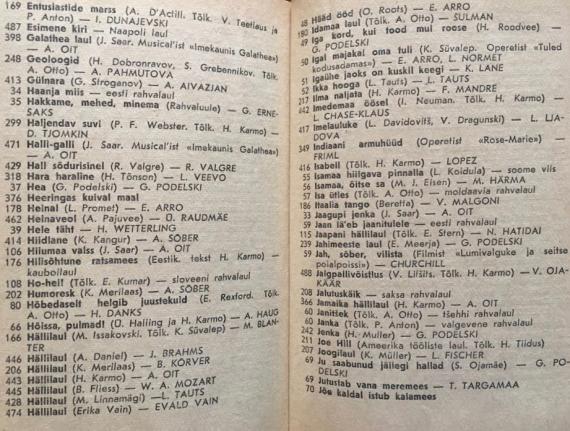 169 Entusiastide marss (A. D'Actill. Tõlk. V. Teetlaus ja
P. Anton) — I. DUNAJEVSKI
487 Esimene kiri — Naapoli laul
398 Galathea laul (J. Saar. Musical'ist «Imekaunis Galathea»)
— A. OIT
248 Geoloogid (H. Dobronravov, S. Grebennikov. Tõlk.
A. Otto) — A. PAHMUTOVA
413 Gülnara (G. Stroganov) — A. AIVAZJAN
34 Haanja miis — eesti rahvalaul
35 Hakkame, mehed, minema (Rahvaluule) — G. ERNE-
SAKS
299 Haljendav suvi (P. F. Webster. Tõlk. H. Karmo) —
D. TJOMKIN
471 Halli-galli (J. Saar. Musical'ist «Imekaunis Galathea»)
— A. OIT
429 Hall sõdurisinel (R. Valgre) — R. VALGRE
318 Hara haraline (H. Tõnson) — L. VEEVO
37 Hea (G. Podelski) — G. PODELSKI
376 Heeringas kuival maal
178 Heinal (L. Promet) — E. ARRO
462 Heinaveol (A. Pajuvee) — O. RAUDMÄE
39 Hele täht — H. WETTERLING
414 Hiidlane (K. Kangur) — A. SÕBER
106 Hiiumaa valss (J. Saar) — A. OIT
176 Hilisõhtune ratsamees (Eestik. tekst H. Karmo) —
kauboilaul
108 Ho-hei! (Tõlk. E. Kumar) — sloveeni rahvalaul
202 Humorosk (K. Merilaas) — A. SÕBER
80 Hõbedaselt helgib juustekuld (E. Rexford. Tõlk.
A. Otto) — H. DANKS
66 Hõissa, pulmad! (O. Halling ja H. Karmo) — A. HAUG
166 Hällilaul (M. Issakovski. Tõlk. K. Süvalep) — M. BLAN-
TER
446 Hällilaul (A. Daniel) — J. BRAHMS
206 Hällilaul (K. Merilaas) — B. KÕRVER
443 Hällilaul (H. Karmo) — A. OIT
445 Hällilaul (B. Fliess) — W. A. MOZART
428 Hällilaul (M. Linnamägi) — L. TAUTS
474 Hällilaul (Erika Vain) — EVALD VAIN
48 Hääd ööd (O. Roots) — E. ARRO
180 Idamaa laul (Tõlk. A. Otto) — SULMAN
49 Iga kord, kui tood mul roose (H. Roodvee) —
G. PODELSKI
50 Igal majakal oma tuli (K. Süvalep. Operetist «Tuled
kodusadamas») — E. ARRO, L. NORMET
51 Igaühe jaoks on kuskil keegi — K. LANE
52 Ikka hooga (L. Tauts) — L. TAUTS
217 Ilma naljata (H. Karmo) — F. MANDRE
442 Imedemaa öösel (I. Neuman. Tõlk. H. Karmo) —
L. CHASE-KLAUS
417 Imelauluke (L. Davidovitš, V. Dragunski) — L. LJA-
DOVA
349 Indiaani armuhüüd (Operetist «Rose-Marie») —
FRIML
416 Isabell (Tõlk. H. Karmo) — LOPEZ
55 Isamaa hiilgava pinnalla (L. Koidula) — soome viis
56 Isamaa, õitse sa (M. J. Eisen) — M. HÄRMA
57 Isa ütles (Tõlk. A. Otto) — moldaavia rahvalaul
186 Itaalia tango (Beretta) — V. MALGONI
33 Jaagupi jenka (J. Saar) — A. OIT
59 Jaan lä'eb jaanitulele — eesti rahvalaul
115 Jaapani hällilaul (Tõlk. E. Stern) — N. HATIDAI
239 Jahimeeste laul (E. Meerja) — G. PODELSKI
59 Jah, sõber, vilista (Filmist «Lumivalguke ja seitse
pöialpoissi») — CHURCHILL
488 Jalgpallivõistlus (V. Lifšits. Tõlk. H. Karmo) — V. OJA-
KÄÄR
208 Jalutuskäik — saksa rahvalaul
366 Jamaika hällilaul (H. Karmo) — A. OIT
60 Janitšek (Tõlk. A. Otto) — tšehhi rahvalaul
60 Janka (Tõlk. P. Anton) — valgevene rahvalaul
242 Jenka (H. Muller) — G. PODELSKI
211 Joe Hill (Ameerika tööliste laul. Tõlk. H. Tiidus)
207 Joogilaul (K. Müller) — L. FISCHER
69 Ju saabunud jällegi hallad (S. Ojamäe) — G. PO-
DELSKI
69 Jutustab vana meremees — T. TARGAMAA
70 Jõe kaldal istub kalamees